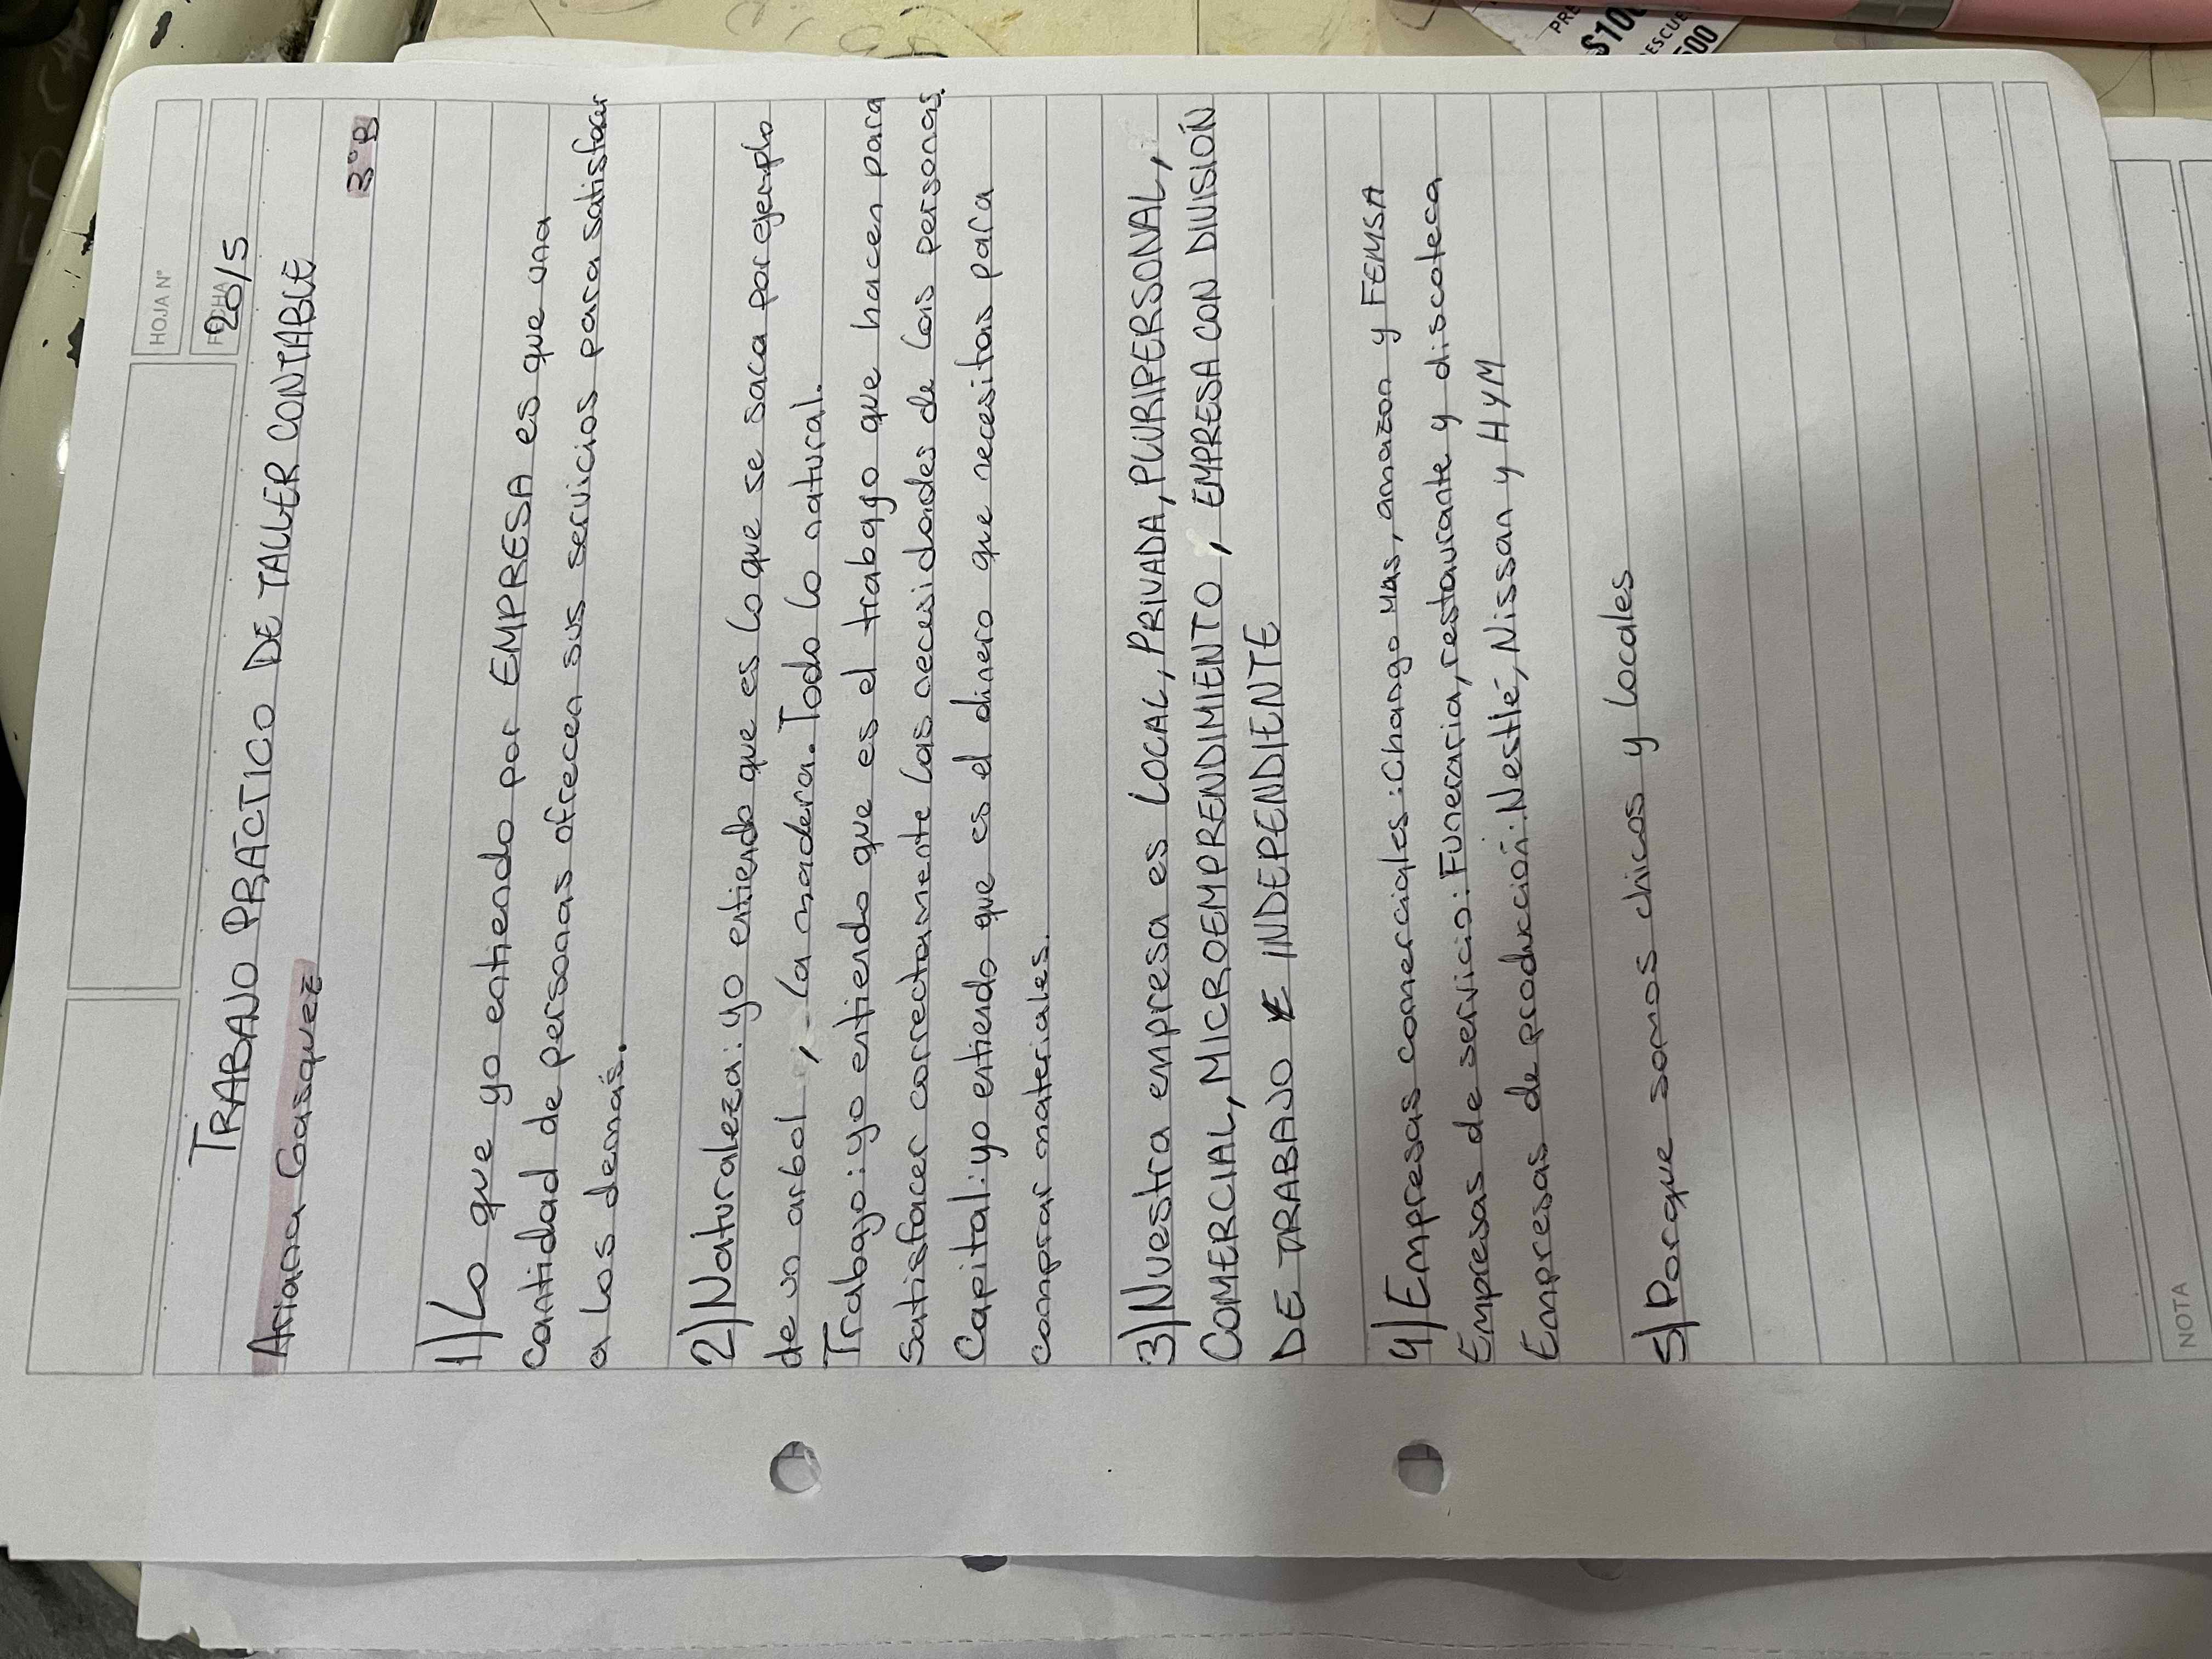 HOJA N°
FECHA 20/5
TRABAJO PRÁCTICO DE TALLER CONTABLE
Ariana Gasquez
3°B
1) Lo que yo entiendo por EMPRESA es que una
cantidad de personas ofrecen sus servicios para satisfacer
a los demás.
2) Naturaleza: yo entiendo que es lo que se saca por ejemplo
de un arbol, la madera. Todo lo natural.
Trabajo: yo entiendo que es el trabago que hacen para
satisfacer correctamente las necesidades de las personas.
Capital: yo entiendo que es el dinero que necesitas para
comprar materiales.
3) Nuestra empresa es LOCAL, PRIVADA, PLURIPERSONAL,
COMERCIAL, MICROEMPRENDIMIENTO, EMPRESA CON DIVISIÓN
DE TRABAJO E INDEPENDIENTE
4) Empresas comerciales: Chango mas, amazon y FEMSA
Empresas de servicio: Funeraria, restaurante y discoteca
Empresas de producción: Nestlé, Nissan y HyM
5) Porque somos chicos y locales
NOTA
$100
ESCUE
500